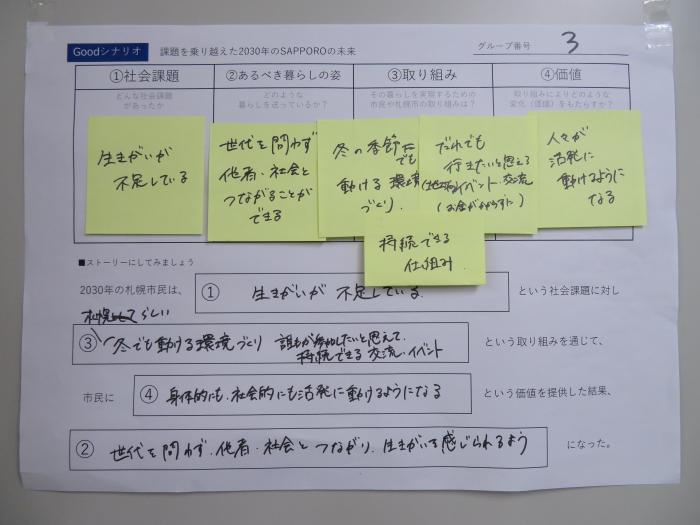 Goodシナリオ 課題を乗り越えた2030年のSAPPOROの未来 グループ番号 3
①社会課題 ②あるべき暮らしの姿 ③取り組み ④価値
どんな社会課題
があったか
どのような
暮らしを送っているか？
その暮らしを実現するための
市民や札幌市の取り組みは？
取り組みによりどのような
変化（価値）をもたらすか？
生きがいが
不足している
世代を問わず
他者・社会と
つながることが
できる
冬の季節
でも
動ける環境
づくり．
だれでも
行きたいと思える
イベント・交流
(お金がかからずに)
持続できる
仕組み
人々が
活発に
動けるように
なる
■ストーリーにしてみましょう
2030年の札幌市民は、 ① 生きがいが 不足している． という社会課題に対し
札幌らしい
③ 冬でも動ける環境づくり 誰もが参加したいと思えて．
持続できる 交流・イベント
という取り組みを通じて、
市民に ④ 身体的にも、社会的にも活発に動けるようになる という価値を提供した結果、
② 世代を問わず、他者・社会とつながり、生きがいを感じられるよう になった。